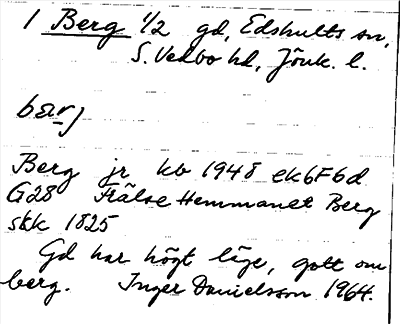 1 Berg 1/2 gd, Edshults sn,
S. Vedbo hd, Jönk. l.
bærj
Berg jr kb 1948 ek6F6d
G28 Frälse Hemmanet Berg
skk 1825
Gd har högt läge, gott om
berg. Inger Danielsson 1964.